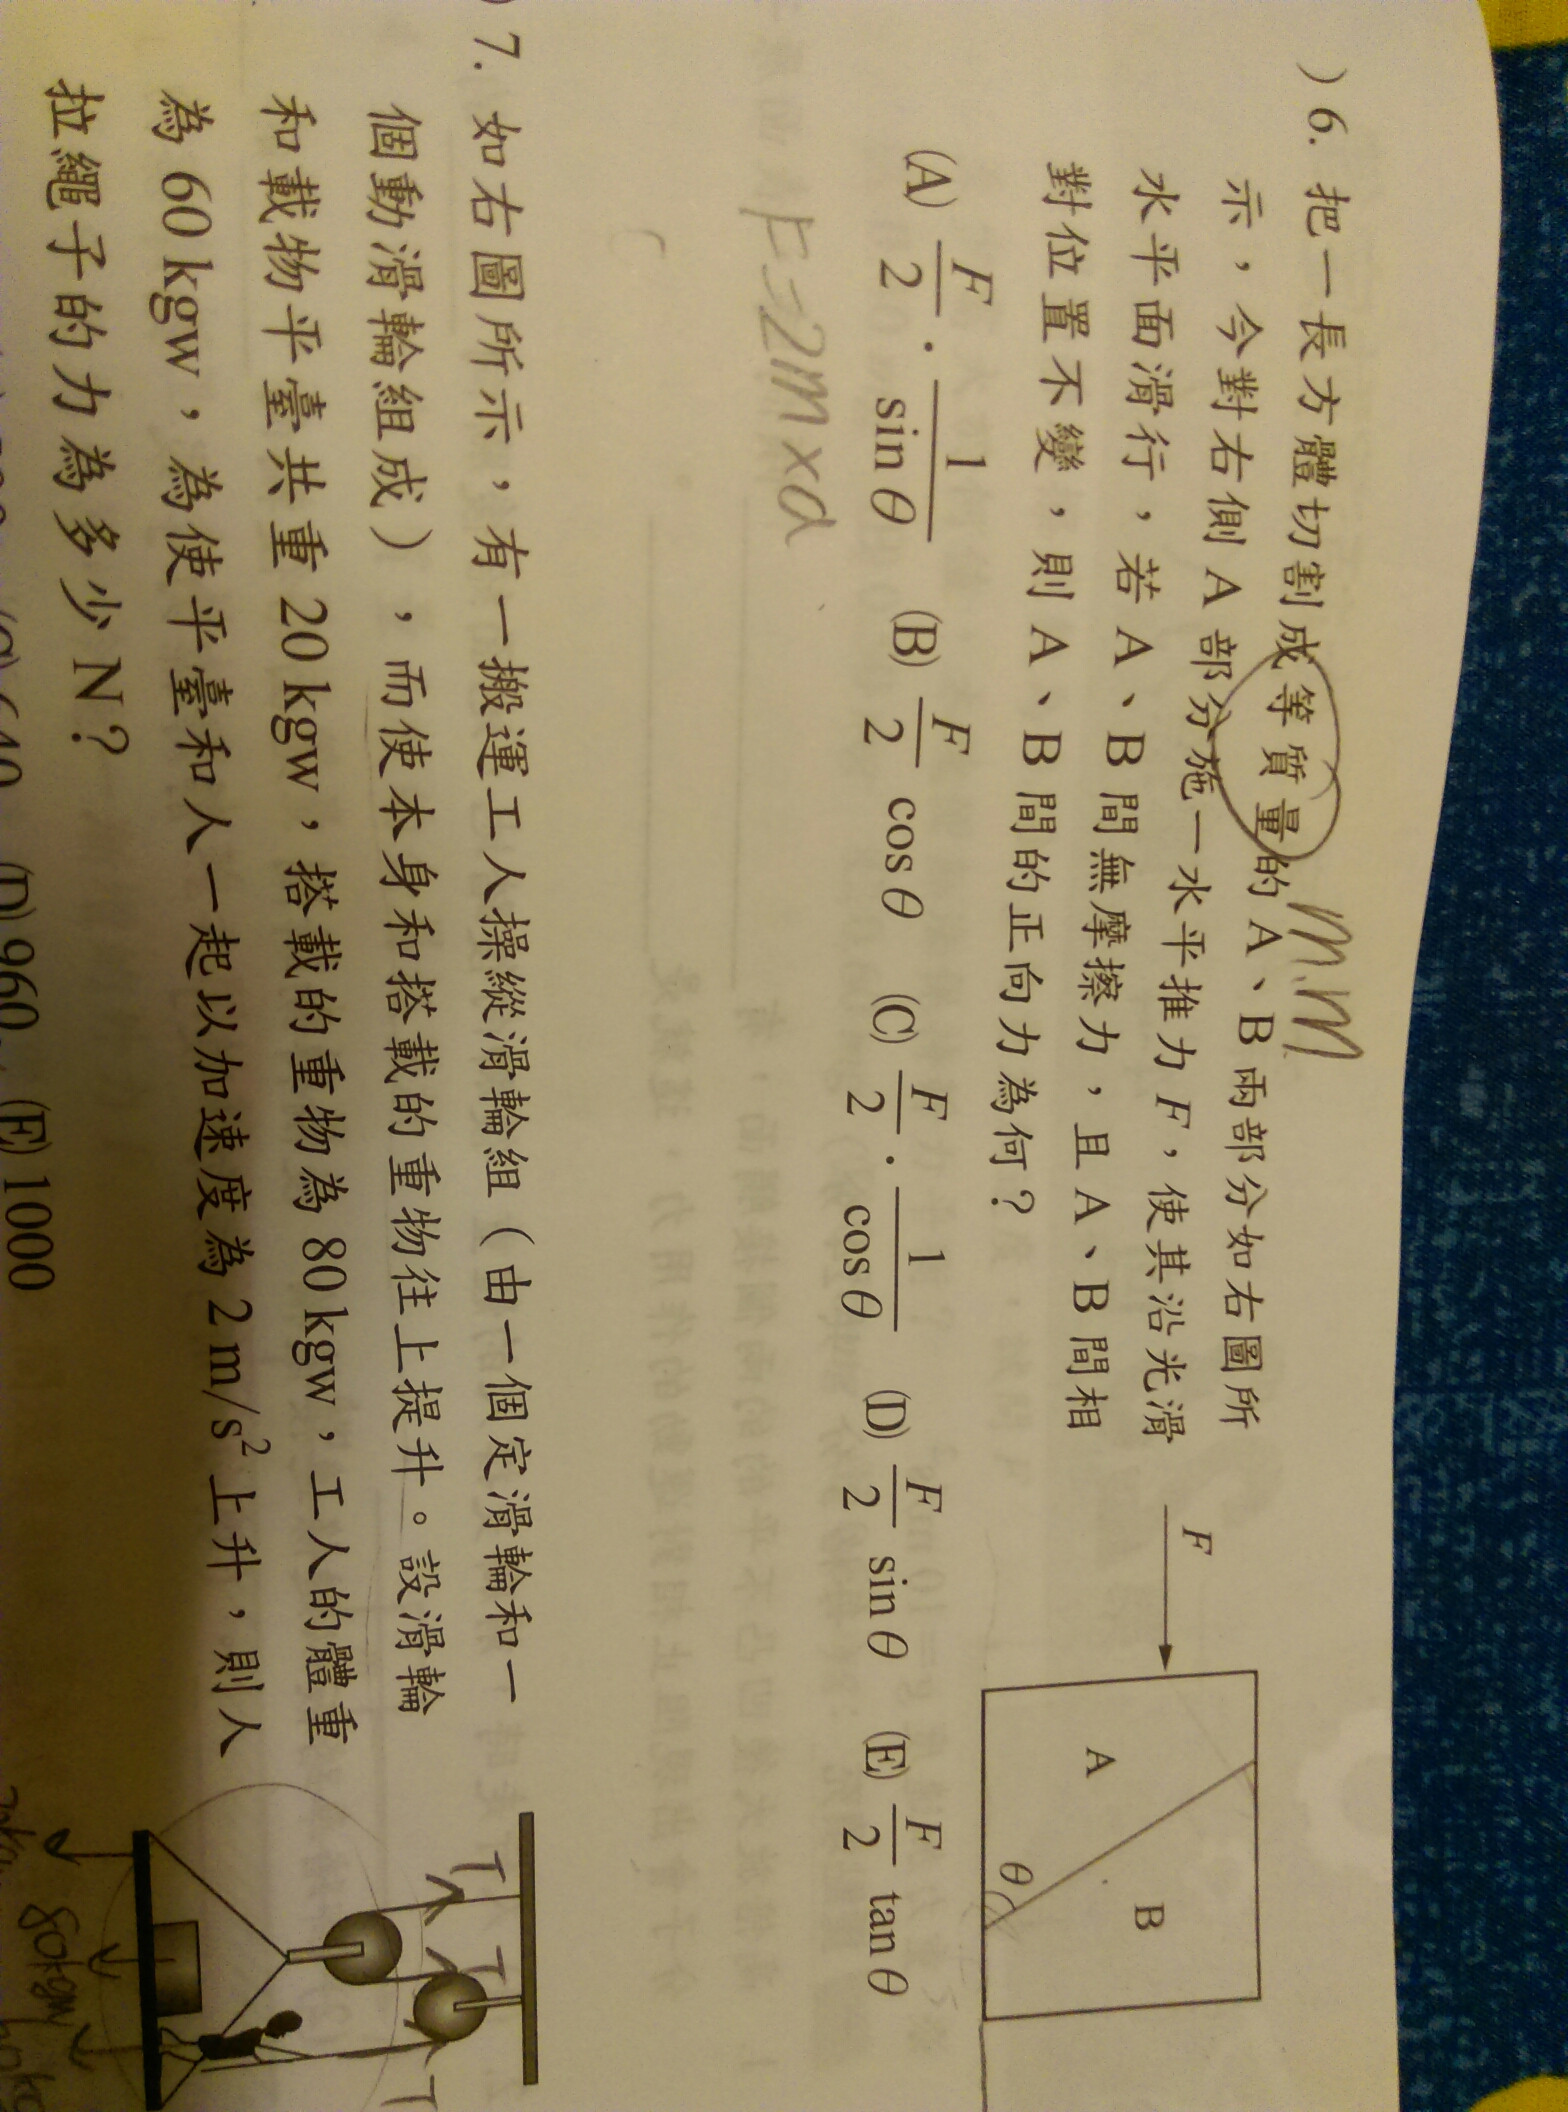 )6. 把一長方體切割成等質量的 A、B 兩部分如右圖所
示，今對右側 A 部分施一水平推力 F，使其沿光滑
水平面滑行，若 A、B 間無摩擦力，且 A、B 間相
對位置不變，則 A、B 間的正向力為何？
(A) F/2 · 1/sin θ (B) F/2 cos θ (C) F/2 · 1/cos θ (D) F/2 sin θ (E) F/2 tan θ
m.m
F
A
B
θ
F=2m×a
)7. 如右圖所示，有一搬運工人操縱滑輪組（由一個定滑輪和一
個動滑輪組成），而使本身和搭載的重物往上提升。設滑輪
和載物平臺共重 20 kgw，搭載的重物為 80 kgw，工人的體重
為 60 kgw，為使平臺和人一起以加速度為 2 m/s² 上升，則人
拉繩子的力為多少 N？
(C) 640 (D) 960 (E) 1000
T
T
T
80kgw